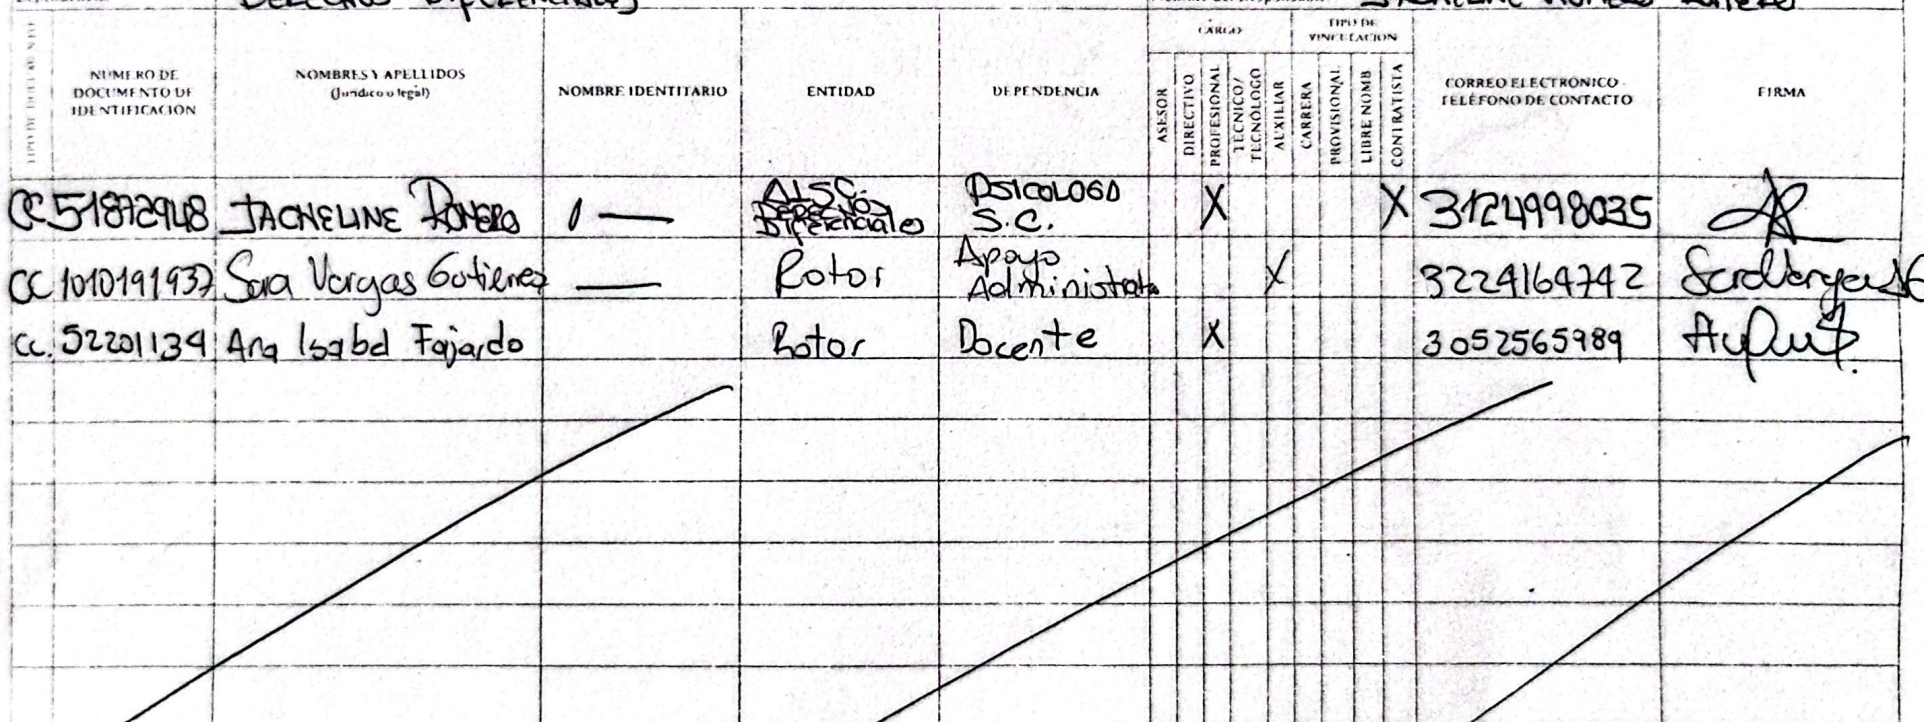 DERECHOS DIFERENCIALES
JACHELINE ROMERO ROMERO
TIPO DE DOCUMENTO
NUMERO DE DOCUMENTO DE IDENTIFICACION
NOMBRES Y APELLIDOS (Juridico o legal)
NOMBRE IDENTITARIO
ENTIDAD
DEPENDENCIA
CARGO
ASESOR
DIRECTIVO
PROFESIONAL
TECNICO/ TECNOLOGO
AUXILIAR
TIPO DE VINCULACION
CARRERA
PROVISIONAL
LIBRE NOMB
CONTRATISTA
CORREO ELECTRONICO - TELEFONO DE CONTACTO
FIRMA
CC 51872948 JACHELINE ROMERO — Diferenciales PSICOLOGO S.C. X X 3124998035
CC 1010191937 Sara Vargas Gutierrez — Rotor Apoyo Administrativo X 3224164742 SaraVargasG
CC. 52201134 Ana Isabel Fajardo Rotor Docente X 3052565989